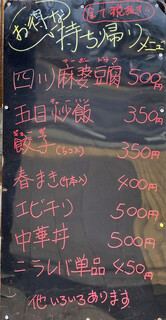 全て税抜き
お得な持ち帰りメニュー
四川麻婆豆腐 500円
マーボードウフ
五目炒飯 350円
餃子(5コ入) 350円
春まき(1本入) 400円
エビチリ 500円
中華丼 500円
ニラレバ単品 450円
他いろいろあります